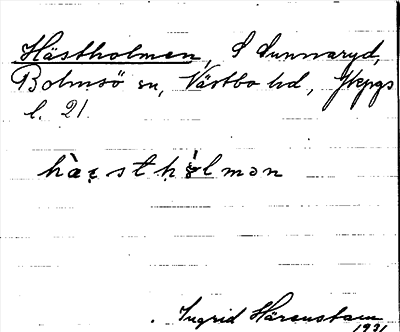 Hästholmen, S Sunnaryd,
Bolmsö sn, Västbo hd, Jkpgs
l. 21.
hæ̀sthólmən
Ingrid Härenstam
1931